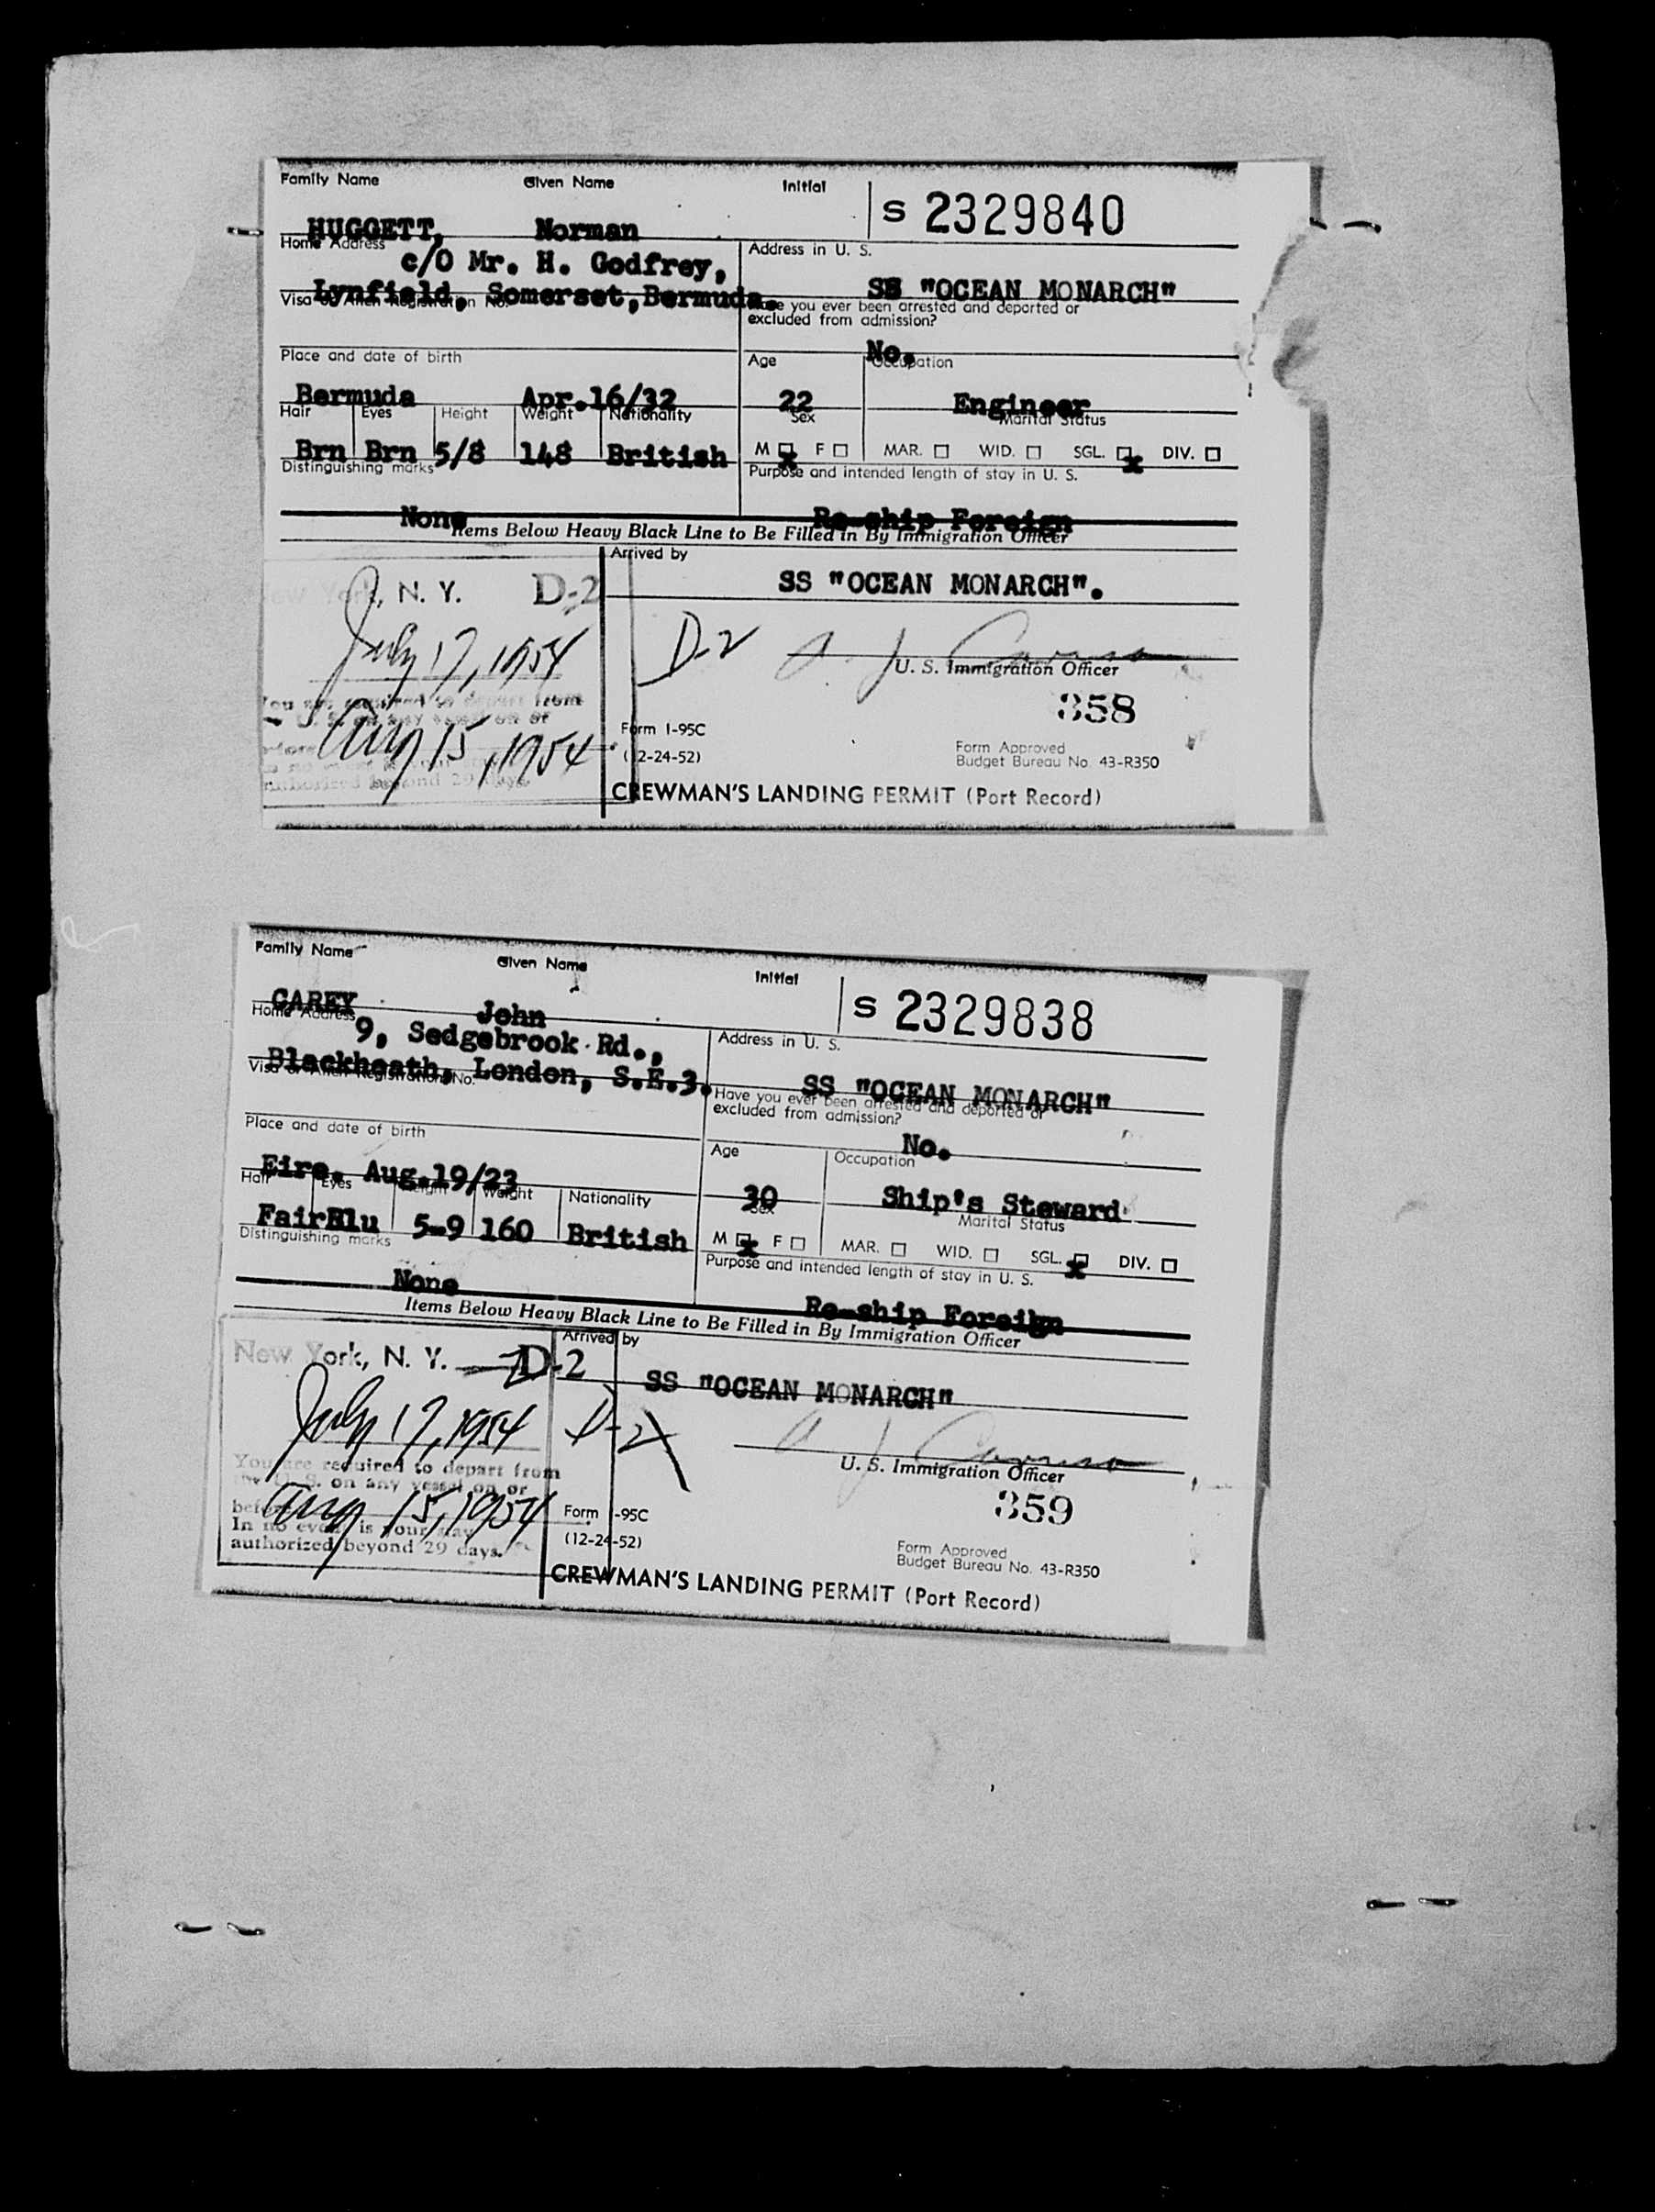 Family Name Given Name Initial S 2329840
HUGGETT, Norman
Home Address Address in U. S.
c/O Mr. H. Godfrey,
Lynfield, Somerset, Bermuda. SS "OCEAN MONARCH"
Visa or Alien Registration No. Have you ever been arrested and deported or
excluded from admission?
No.
Place and date of birth Age Occupation
Bermuda Apr.16/32 22 Engineer
Hair Eyes Height Weight Nationality Sex Marital Status
Brn Brn 5/8 148 British M x F MAR. WID. SGL. x DIV.
Distinguishing marks Purpose and intended length of stay in U. S.
None Re-ship Foreign
Items Below Heavy Black Line to Be Filled in By Immigration Officer
Arrived by
New York, N. Y. D-2 SS "OCEAN MONARCH".
July 17, 1954 D-2
U. S. Immigration Officer
You are required to depart from
U. S. on any vessel on or 358
before Aug 15, 1954 Form I-95C
(12-24-52) Form Approved
Budget Bureau No. 43-R350
authorized beyond 29 days.
CREWMAN'S LANDING PERMIT (Port Record)
Family Name Given Name Initial S 2329838
CAREY John
Home Address Address in U. S.
9, Sedgebrook Rd.,
Blackheath, London, S.E.3. SS "OCEAN MONARCH"
Visa or Alien Registration No. Have you ever been arrested and deported or
excluded from admission?
No.
Place and date of birth Age Occupation
Eire. Aug.19/23 30 Ship's Steward
Hair Eyes Height Weight Nationality Sex Marital Status
Fair Blu 5-9 160 British M x F MAR. WID. SGL. x DIV.
Distinguishing marks Purpose and intended length of stay in U. S.
None Re-ship Foreign
Items Below Heavy Black Line to Be Filled in By Immigration Officer
Arrived by
New York, N. Y. D-2 SS "OCEAN MONARCH"
July 17, 1954 D-2
U. S. Immigration Officer
You are required to depart from
the U. S. on any vessel on or 359
before Aug 15, 1954 Form I-95C
In no event is your stay (12-24-52) Form Approved
authorized beyond 29 days. Budget Bureau No. 43-R350
CREWMAN'S LANDING PERMIT (Port Record)